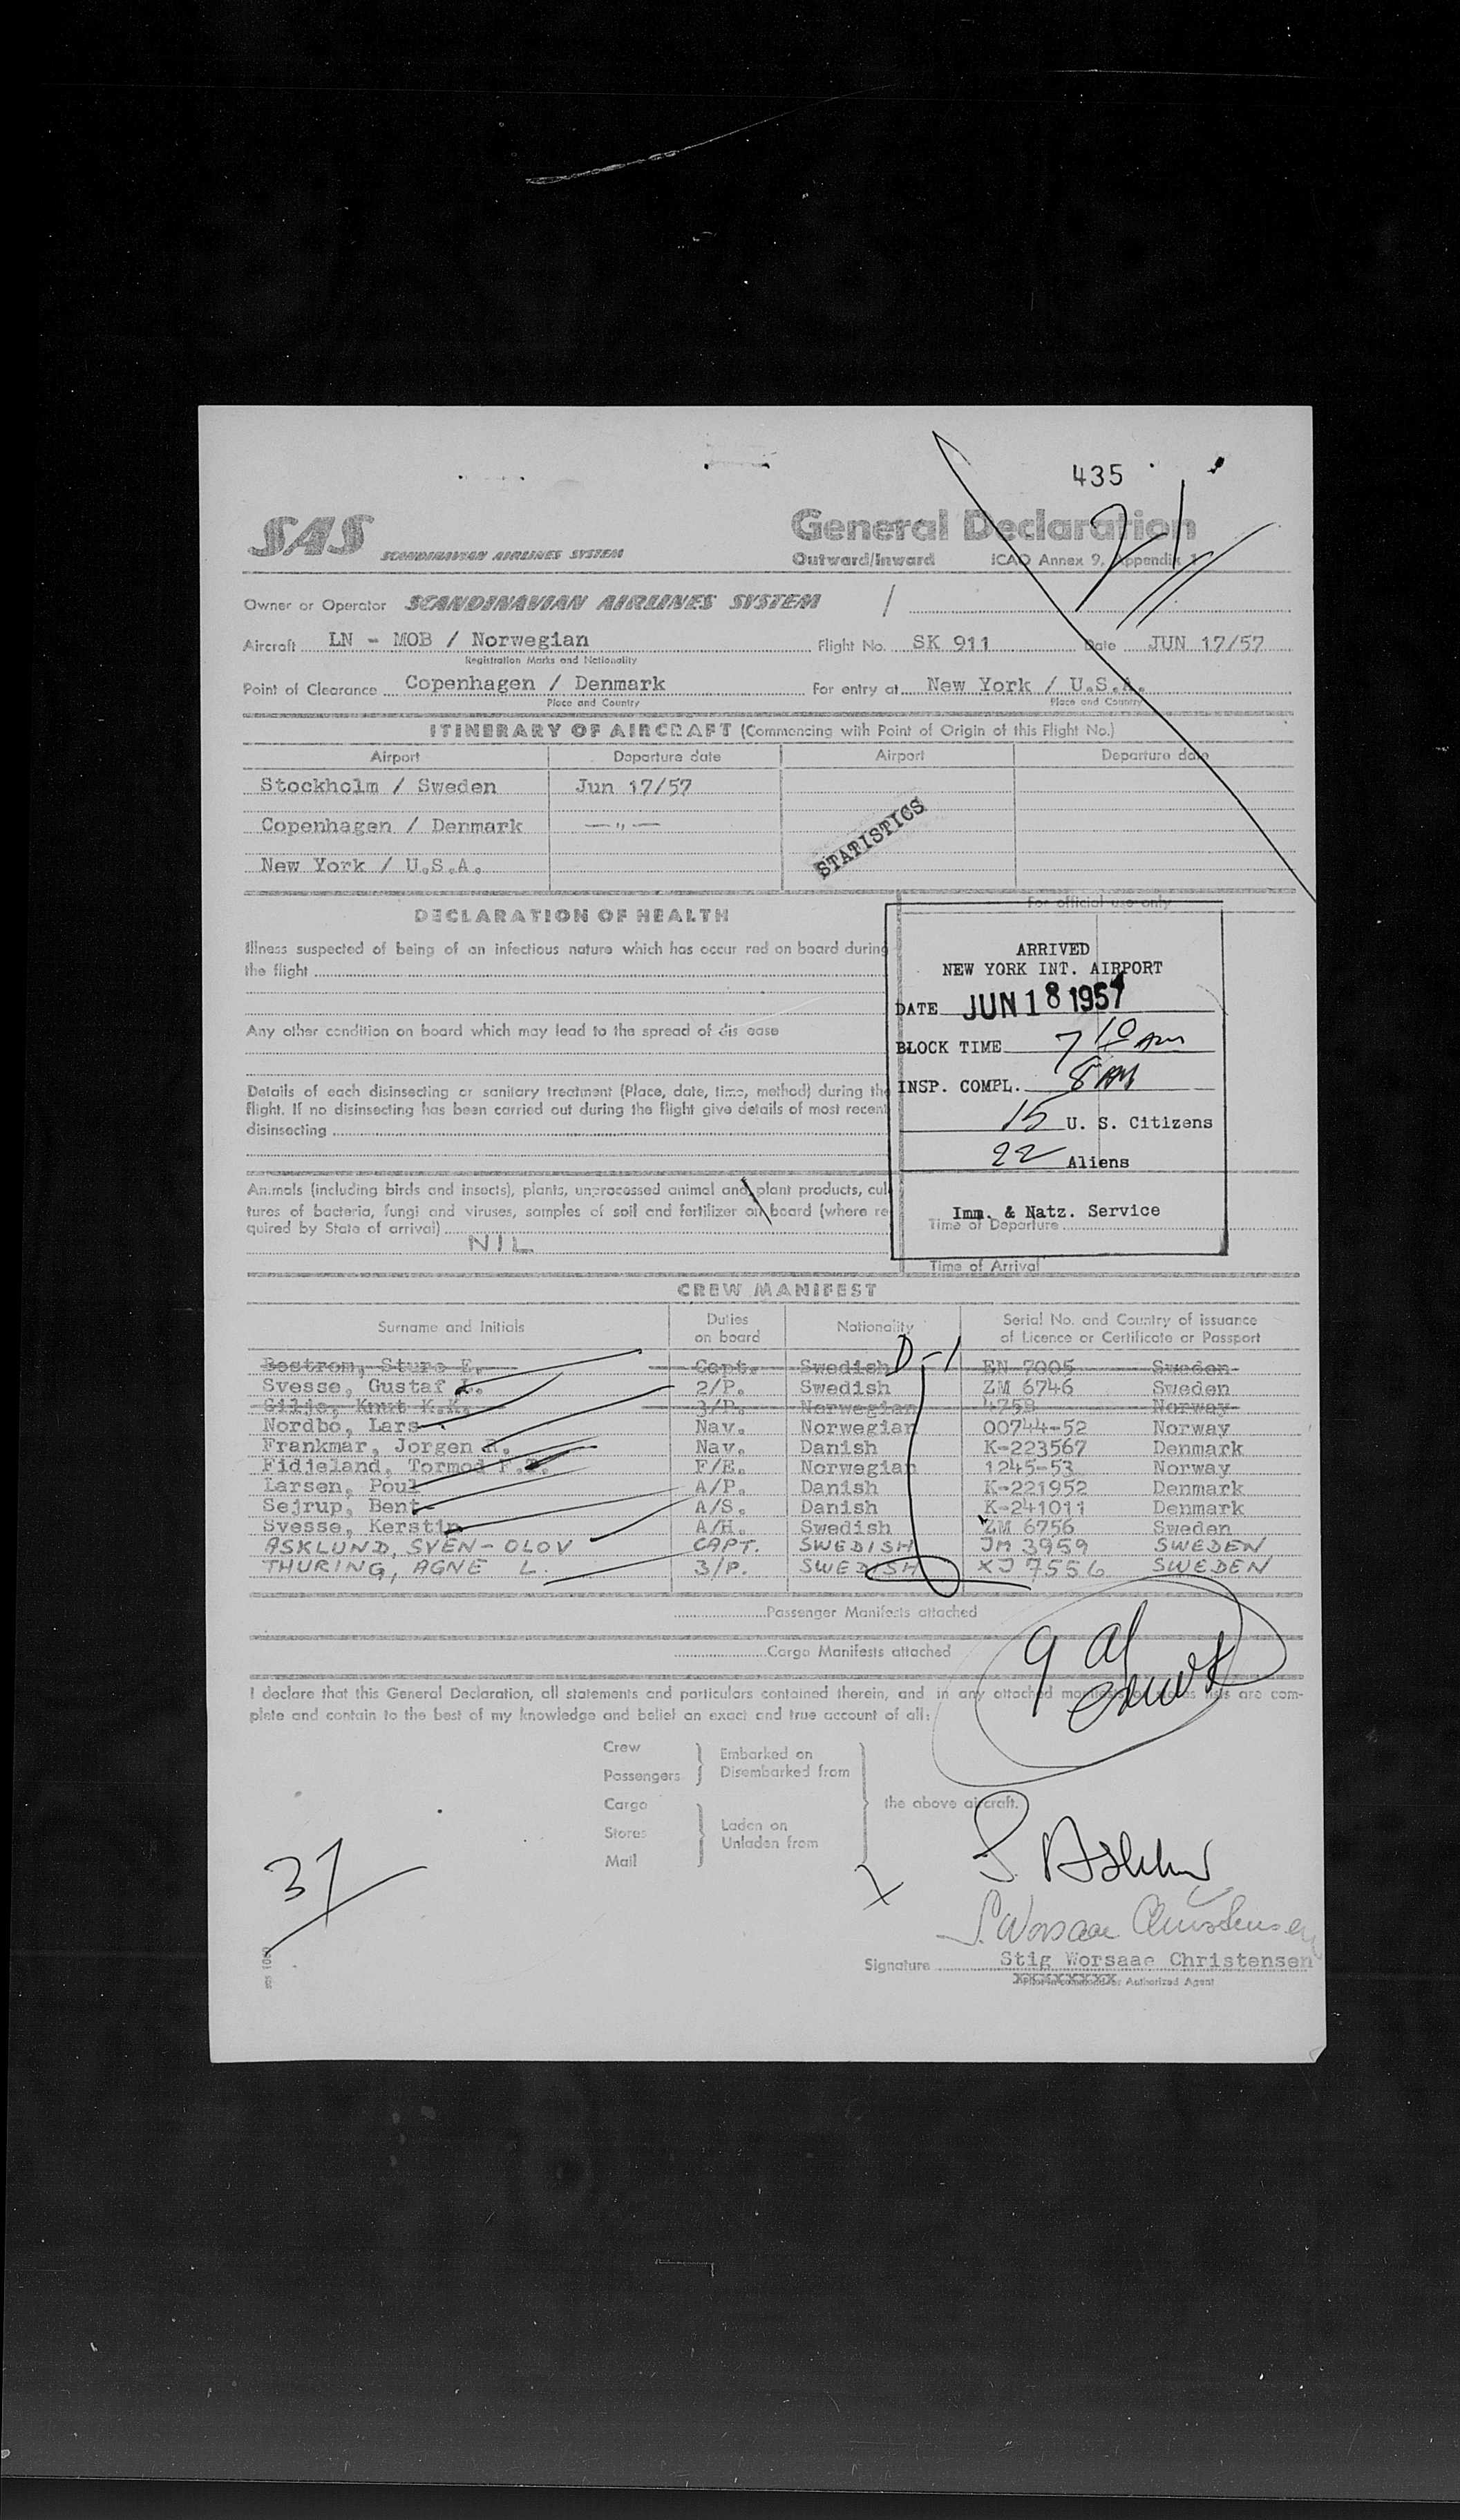 435
SAS SCANDINAVIAN AIRLINES SYSTEM
General Declaration
Outward/Inward ICAO Annex 9, Appendix 1
Owner or Operator SCANDINAVIAN AIRLINES SYSTEM /
Aircraft LN - MOB / Norwegian Flight No. SK 911 Date JUN 17/57
Registration Marks and Nationality
Point of Clearance Copenhagen / Denmark For entry at New York / U.S.A.
Place and Country Place and Country
ITINERARY OF AIRCRAFT (Commencing with Point of Origin of this Flight No.)
Airport Departure date Airport Departure date
Stockholm / Sweden Jun 17/57
Copenhagen / Denmark —"—
New York / U.S.A.
STATISTICS
DECLARATION OF HEALTH
For official use only
Illness suspected of being of an infectious nature which has occur red on board during
the flight
Any other condition on board which may lead to the spread of dis ease
Details of each disinsecting or sanitary treatment (Place, date, time, method) during the
flight. If no disinsecting has been carried out during the flight give details of most recent
disinsecting
Animals (including birds and insects), plants, unprocessed animal and plant products, cul
tures of bacteria, fungi and viruses, samples of soil and fertilizer on board (where re
quired by State of arrival)
NIL
ARRIVED
NEW YORK INT. AIRPORT
DATE JUN 18 1957
BLOCK TIME 7 10 AM
INSP. COMPL. 8 AM
15 U. S. Citizens
22 Aliens
Imm. & Natz. Service
Time of Departure
Time of Arrival
CREW MANIFEST
Surname and Initials Duties on board Nationality Serial No. and Country of issuance of Licence or Certificate or Passport
D-1
Bostrom, Sture E. Capt. Swedish EN 7005 Sweden
Svesse, Gustaf L. 2/P. Swedish ZM 6746 Sweden
Gilje, Knut K.K. 3/P. Norwegian 4758 Norway
Nordbo, Lars Nav. Norwegian 00744-52 Norway
Frankmar, Jorgen R. Nav. Danish K-223567 Denmark
Fidjeland, Tormod F.T. F/E. Norwegian 1245-53 Norway
Larsen, Poul A/P. Danish K-221952 Denmark
Sejrup, Bent A/S. Danish K-241011 Denmark
Svesse, Kerstin A/H. Swedish ZM 6756 Sweden
ASKLUND, SVEN-OLOV CAPT. SWEDISH JM 3959 SWEDEN
THURING, AGNE L. 3/P. SWEDISH XJ 7556 SWEDEN
Passenger Manifests attached
Cargo Manifests attached
9 al
I declare that this General Declaration, all statements and particulars contained therein, and in any attached manifests are com-
plete and contain to the best of my knowledge and belief an exact and true account of all:
Crew
Passengers
Embarked on
Disembarked from
Cargo
Stores
Mail
Laden on
Unladen from
the above aircraft.
37
S. Worsaae Christensen
Signature Stig Worsaae Christensen
or Authorized Agent